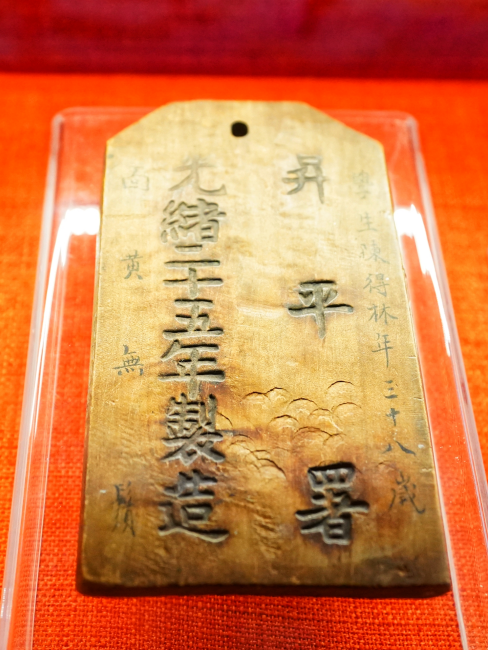 學生陳得林年三十八歲
昇平署
光緒二十五年製造
面黃無鬚